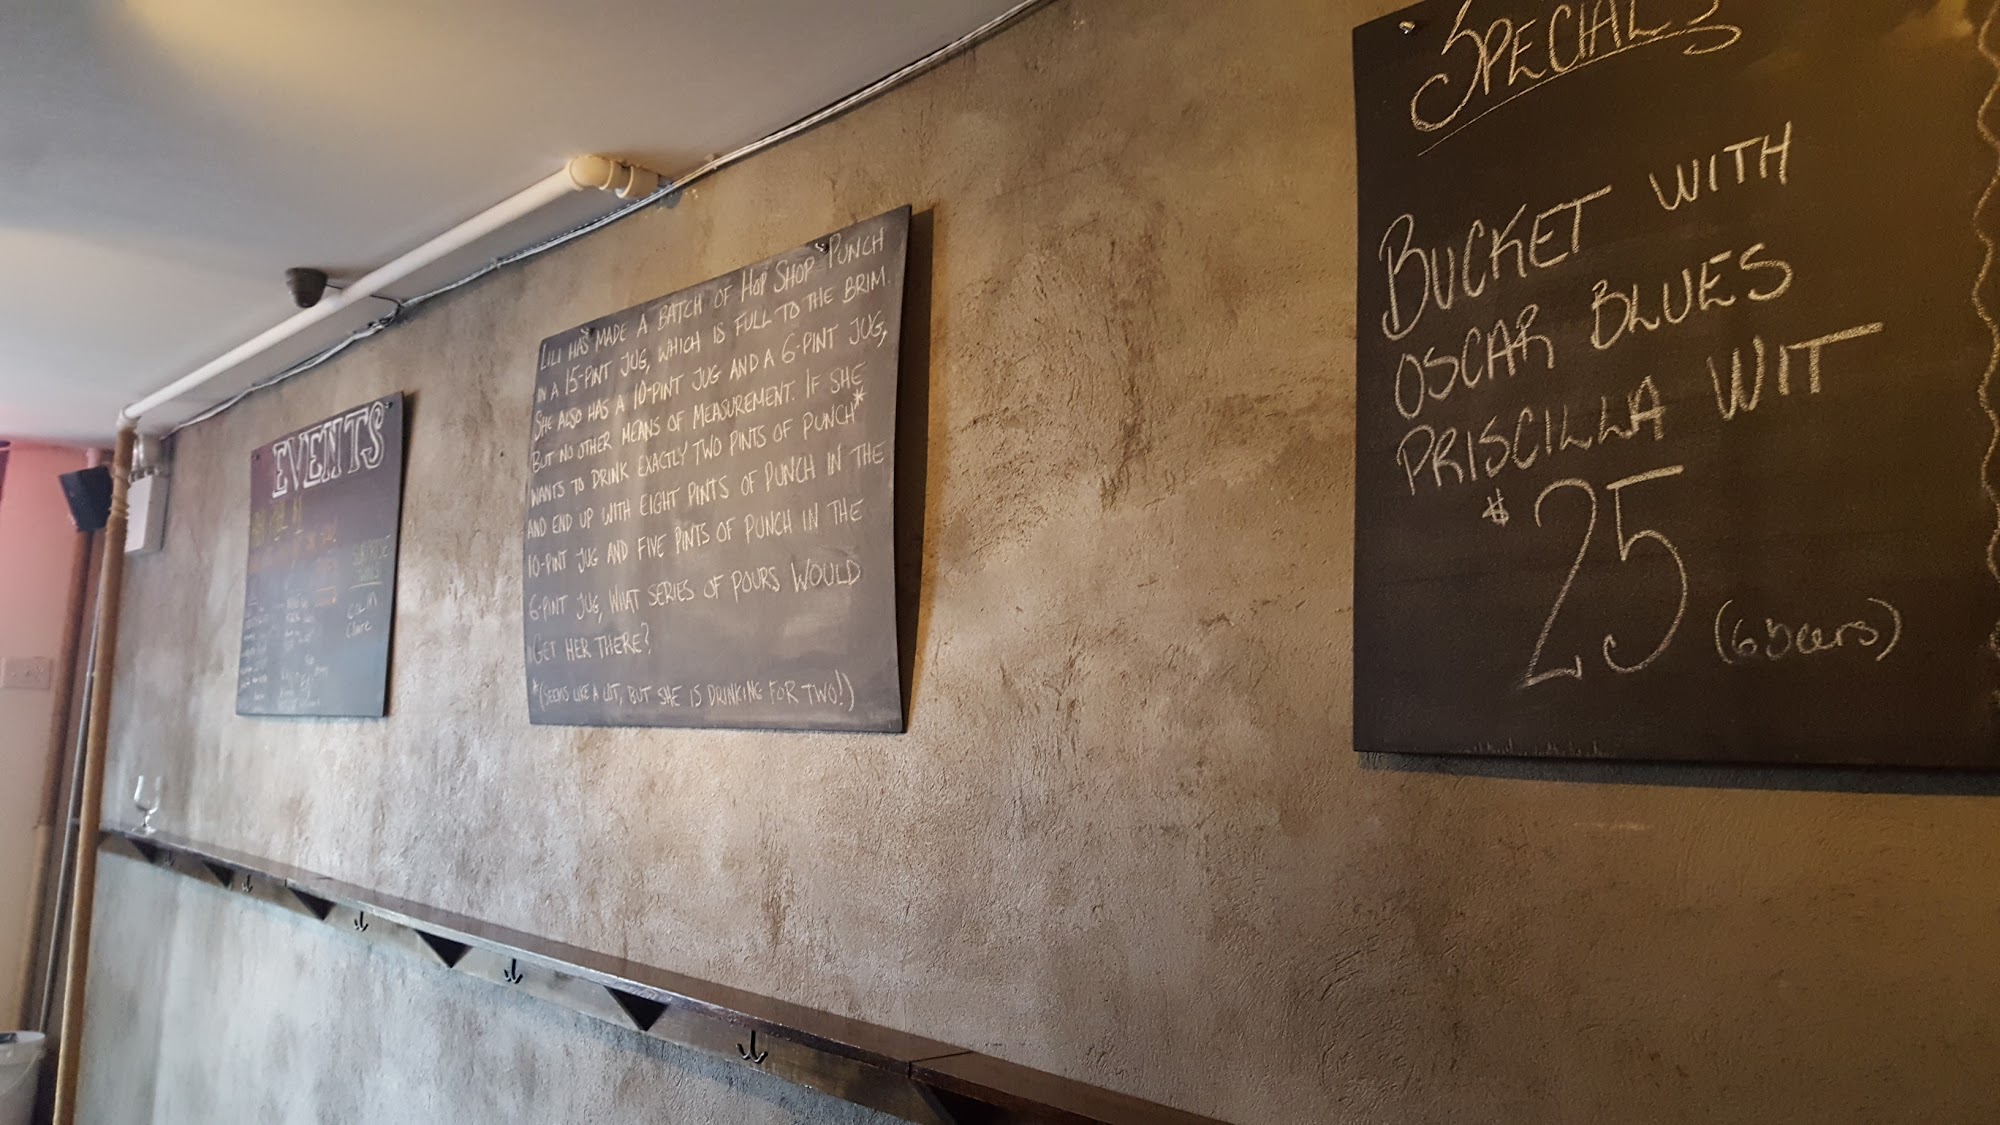 EVENTS
LILI HAS MADE A BATCH OF HOP SHOP PUNCH
IN A 15-PINT JUG, WHICH IS FULL TO THE BRIM.
SHE ALSO HAS A 10-PINT JUG AND A 6-PINT JUG,
BUT NO OTHER MEANS OF MEASUREMENT. IF SHE
WANTS TO DRINK EXACTLY TWO PINTS OF PUNCH*
AND END UP WITH EIGHT PINTS OF PUNCH IN THE
10-PINT JUG AND FIVE PINTS OF PUNCH IN THE
6-PINT JUG, WHAT SERIES OF POURS WOULD
GET HER THERE?
*(SEEMS LIKE A LOT, BUT SHE IS DRINKING FOR TWO!)
SPECIALS
BUCKET WITH
OSCAR BLUES
PRISCILLA WIT
$25 (6 beers)